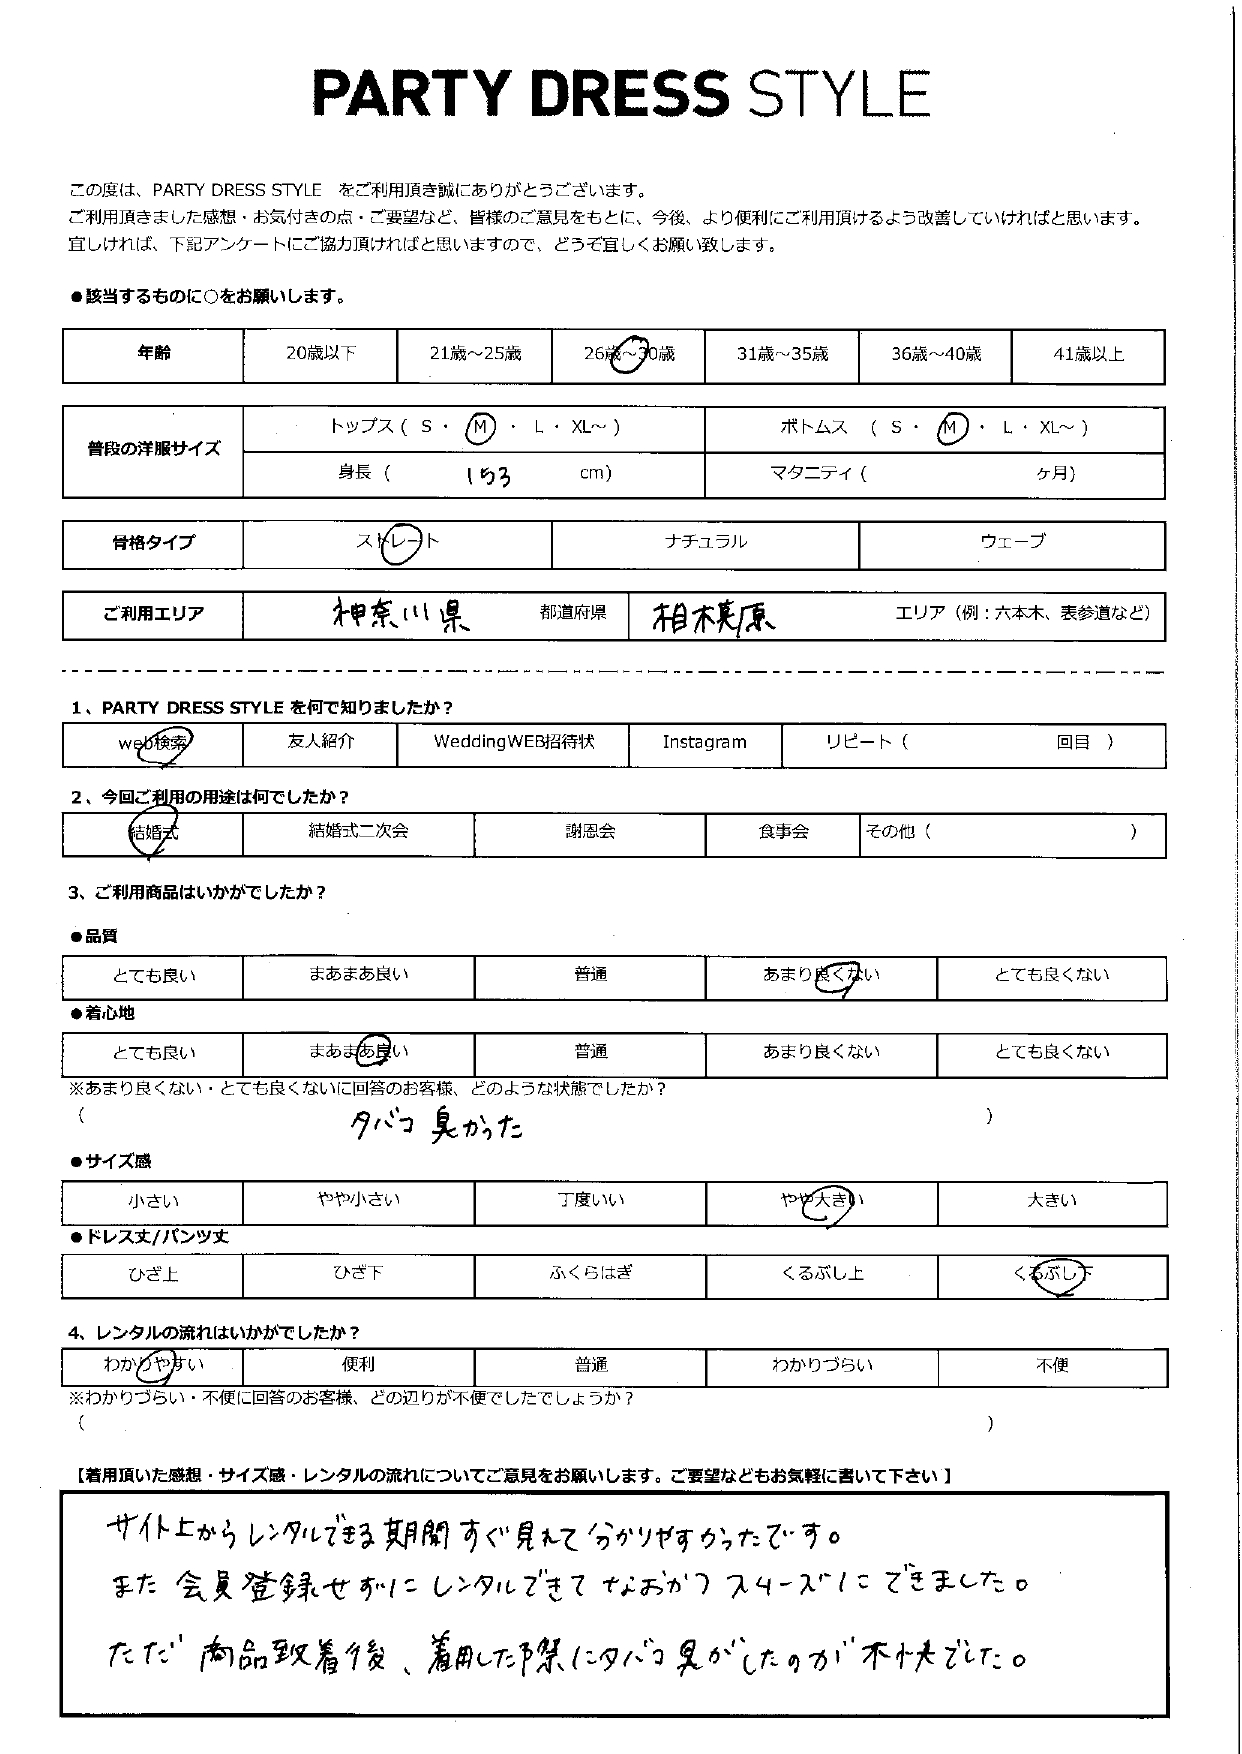 PARTY DRESS STYLE
この度は、PARTY DRESS STYLE をご利用頂き誠にありがとうございます。
ご利用頂きました感想・お気付きの点・ご要望など、皆様のご意見をもとに、今後、より便利にご利用頂けるよう改善していければと思います。
宜しければ、下記アンケートにご協力頂ければと思いますので、どうぞ宜しくお願い致します。
●該当するものに○をお願いします。
年齢 20歳以下 21歳～25歳 26歳～30歳 31歳～35歳 36歳～40歳 41歳以上
普段の洋服サイズ トップス ( S ・ M ・ L ・ XL～ ) ボトムス ( S ・ M ・ L ・ XL～ )
身長 ( 153 cm) マタニティ ( ヶ月)
骨格タイプ ストレート ナチュラル ウェーブ
ご利用エリア 神奈川県 都道府県 相模原 エリア（例：六本木、表参道など）
1、PARTY DRESS STYLE を何で知りましたか？
web検索 友人紹介 WeddingWEB招待状 Instagram リピート ( 回目 )
2、今回ご利用の用途は何でしたか？
結婚式 結婚式二次会 謝恩会 食事会 その他 ( )
3、ご利用商品はいかがでしたか？
●品質
とても良い まあまあ良い 普通 あまり良くない とても良くない
●着心地
とても良い まあまあ良い 普通 あまり良くない とても良くない
※あまり良くない・とても良くないに回答のお客様、どのような状態でしたか？
( タバコ 臭かった )
●サイズ感
小さい やや小さい 丁度いい やや大きい 大きい
●ドレス丈/パンツ丈
ひざ上 ひざ下 ふくらはぎ くるぶし上 くるぶし下
4、レンタルの流れはいかがでしたか？
わかりやすい 便利 普通 わかりづらい 不便
※わかりづらい・不便に回答のお客様、どの辺りが不便でしたでしょうか？
( )
【着用頂いた感想・サイズ感・レンタルの流れについてご意見をお願いします。ご要望などもお気軽に書いて下さい】
サイト上からレンタルできる期間すぐ見れて分かりやすかったです。
また 会員登録せずにレンタルできて なおかつ スムーズにできました。
ただ 商品到着後、着用した際にタバコ臭がしたのが